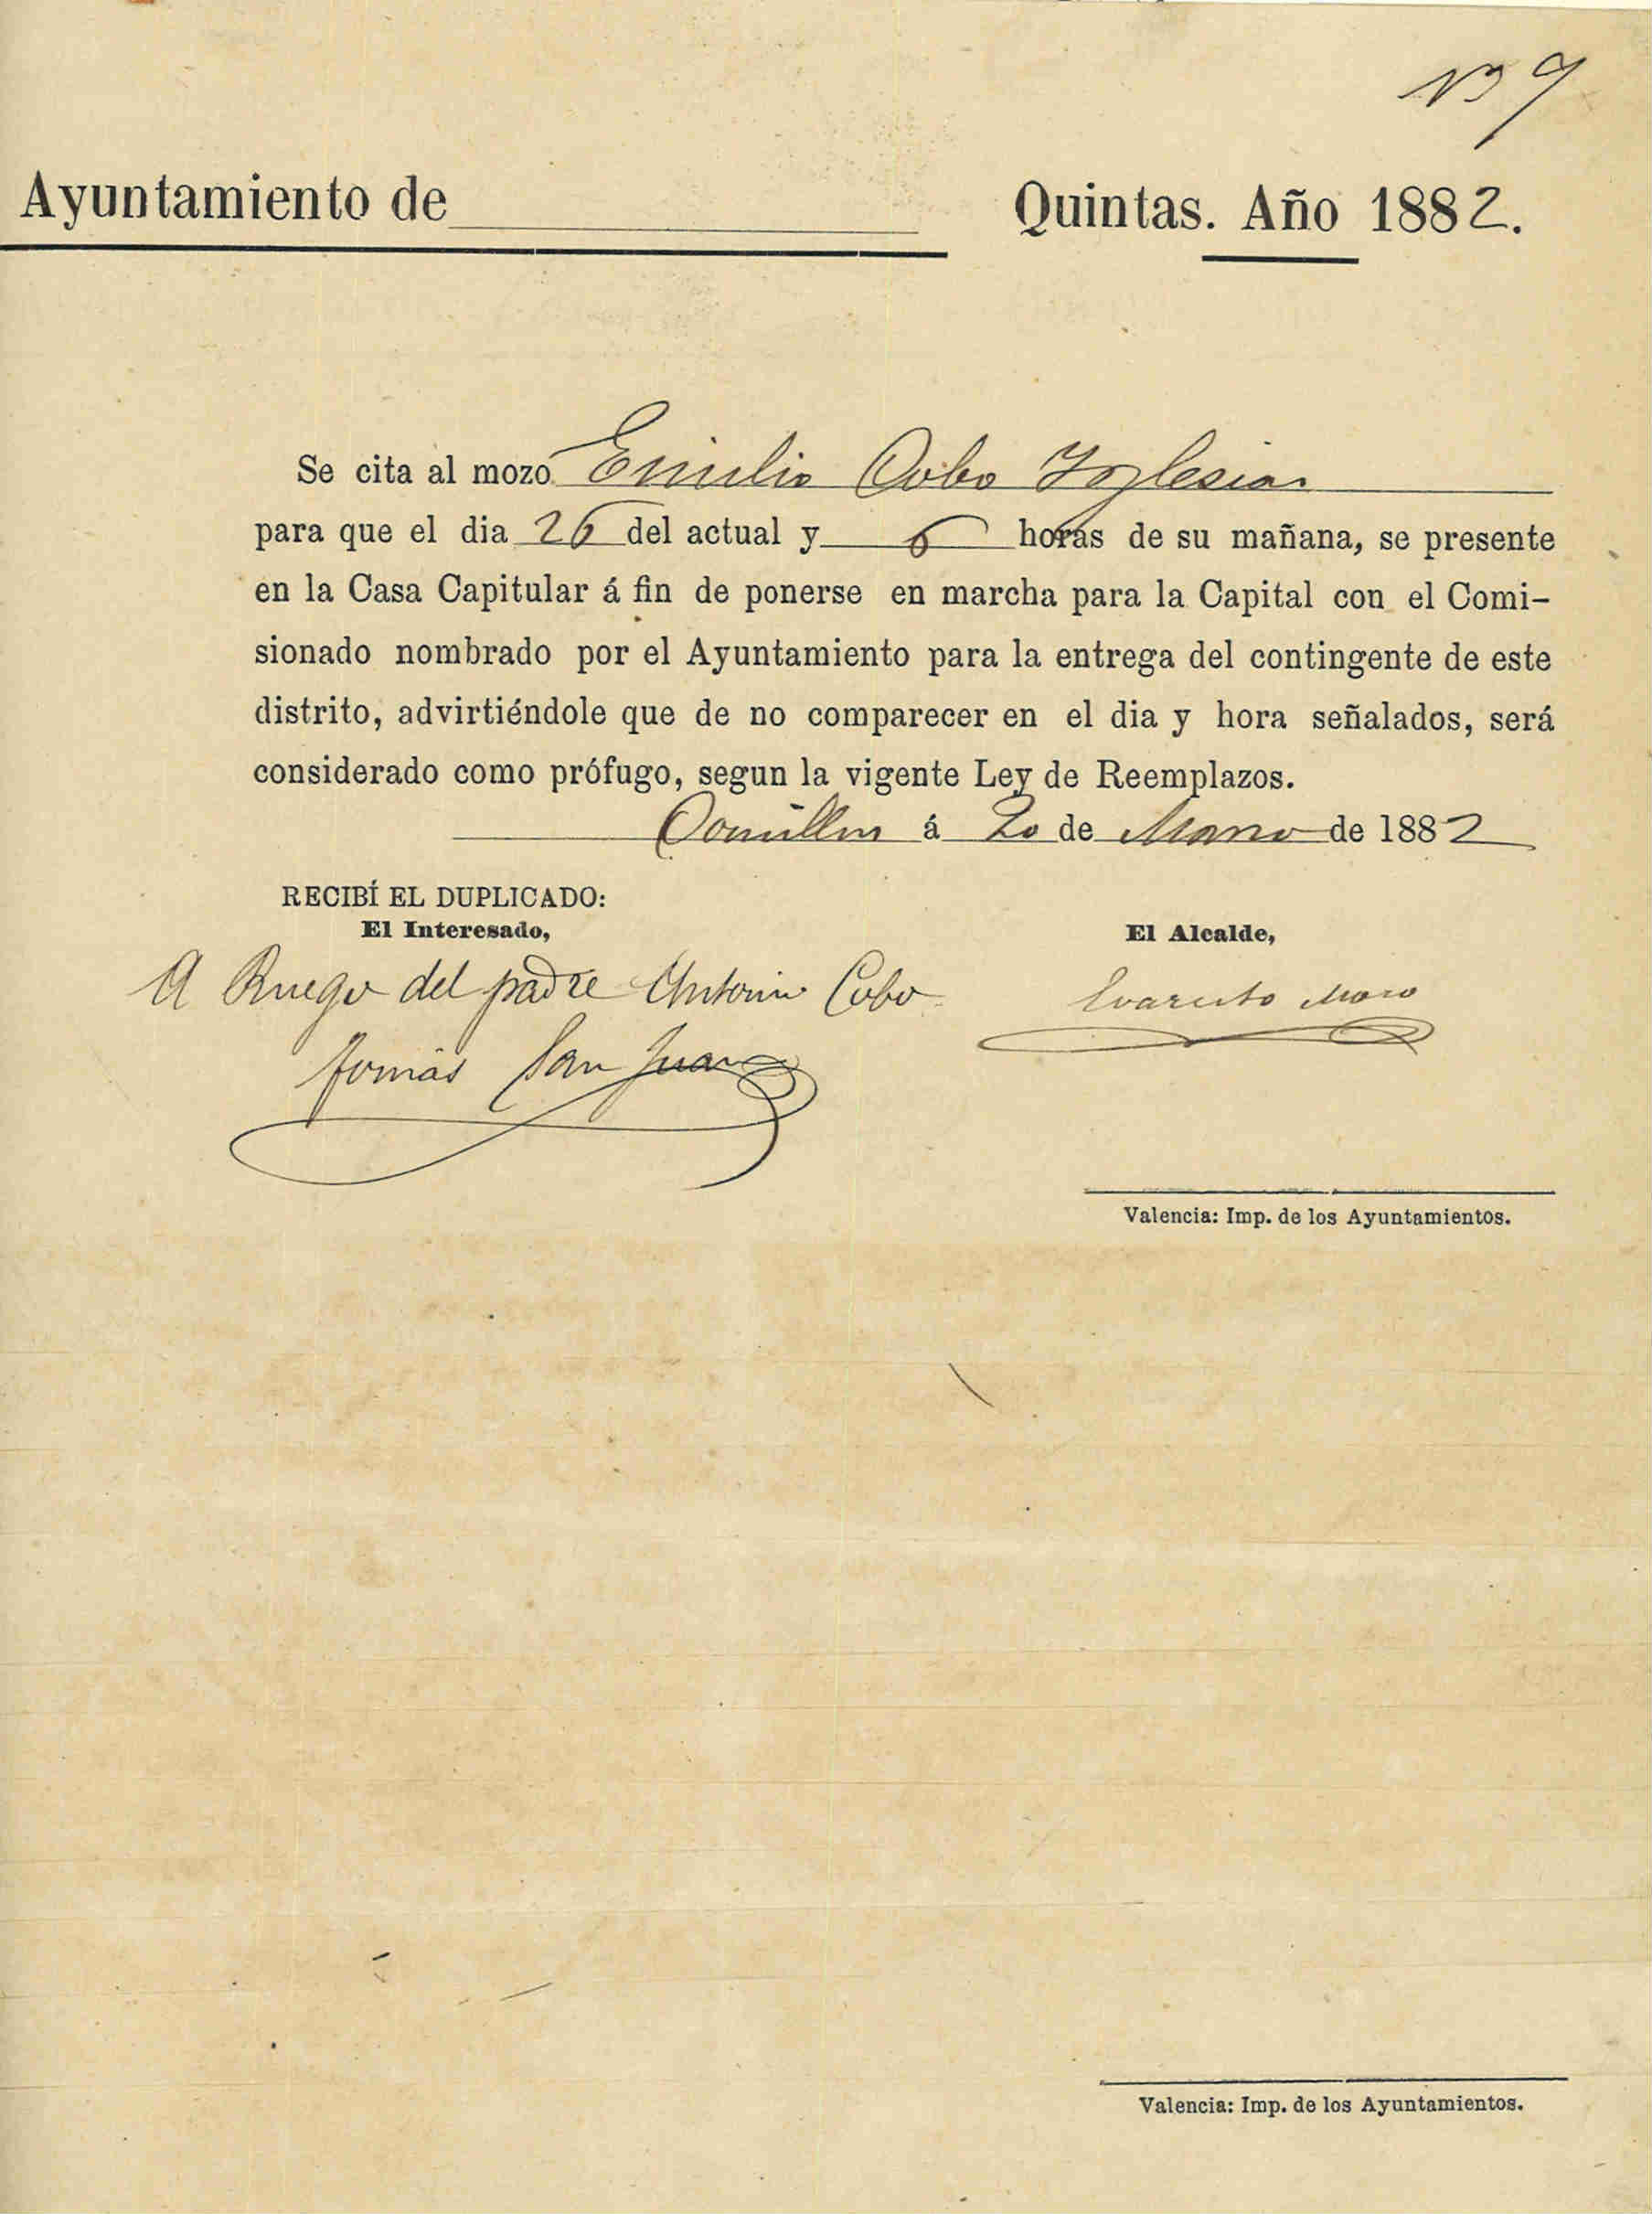 Nº 9
Ayuntamiento de
Quintas. Año 1882.
Se cita al mozo Emilio Cobo Yglesias
para que el dia 26 del actual y 6 horas de su mañana, se presente
en la Casa Capitular á fin de ponerse en marcha para la Capital con el Comi-
sionado nombrado por el Ayuntamiento para la entrega del contingente de este
distrito, advirtiéndole que de no comparecer en el dia y hora señalados, será
considerado como prófugo, segun la vigente Ley de Reemplazos.
Comillas á 20 de Marzo de 1882
RECIBÍ EL DUPLICADO:
El Interesado,
El Alcalde,
A Ruego del padre Antonio Cobo
Evaristo Moro
Tomás San Juan
Valencia: Imp. de los Ayuntamientos.
Valencia: Imp. de los Ayuntamientos.